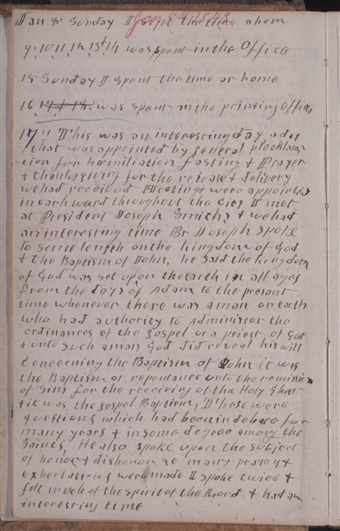 Jan 8th Sunday I spent the time at home
9. 10. 11. 12. 13. 14 was spent in the Office
15 Sunday I spent the time at home
16 was spent in the printing office
17th This was an interesting day a day
that was appointed by general proclama
tion for humiliation fasting & Prayer
& thanksgiving for the release & delivery
we had received Meetings were appointed
in each ward throughout the City I met
at President Joseph Smiths & we had
an interesting time Br Joseph spoke
to some length on the kingdom of God
& the Baptism of John, he said the kingdom
of God was set upon the earth in all ages
from the days of Adam to the present
time whenever there was a man on earth
who had authority to Administer the
ordinances of the gospel or a priest of God
& unto such a man God did reveal his will
Concerning the Baptism of John it was
the Baptism of repentance unto the remission
of Sins for the receiving of the Holy Ghost
& it was the gospel Baptism, These were
questions which had been in debate for
many years & in some degree among the
Saints, He also spoke upon the subject
of honor & dishonor &c many prayers &
exhortations were made I spoke twice &
felt much of the spirit of the Lord & had an
interesting time